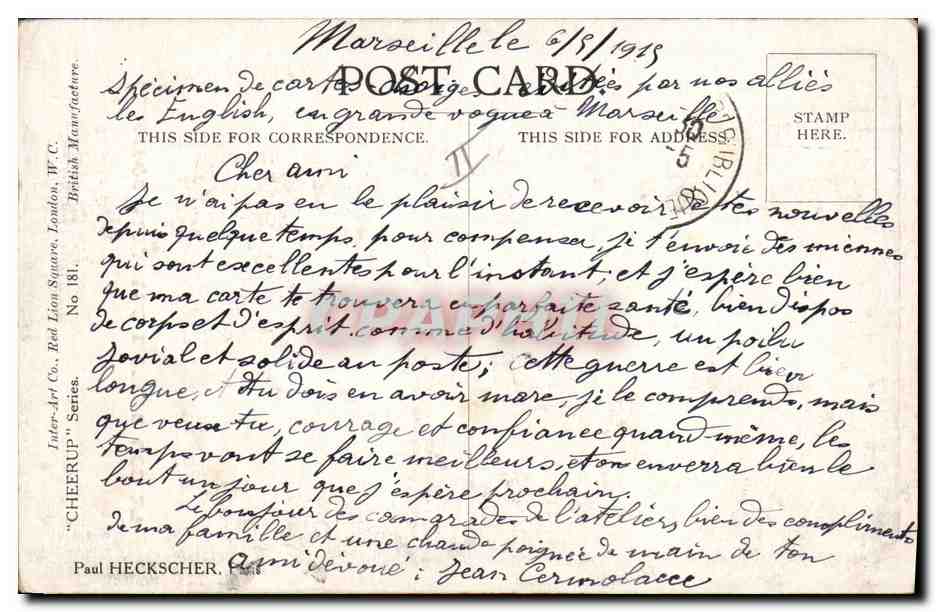 Marseille le 6/5/1915
POST CARD
Spécimen de cartes par nos alliés
les English, en grande vogue à Marseille
THIS SIDE FOR CORRESPONDENCE.
THIS SIDE FOR ADDRESS.
STAMP
HERE.
II
Cher ami
Je n'ai pas eu le plaisir de recevoir de tes nouvelles
depuis quelque temps. pour compenser, je t'envoie des miennes
qui sont excellentes pour l'instant, et j'espère bien
que ma carte te trouvera en parfaite santé, bien dispos
de corps et d'esprit comme d'habitude, un poilu
jovial et solide au poste; cette guerre est bien
longue, et tu dois en avoir mare, je le comprends, mais
que veux tu, courage et confiance quand même, les
temps vont se faire meilleurs, et on en verra bien le
bout un jour que j'espère prochain.
Le bonjour des camarades de l'atelier, bien des compliments
de ma famille et une chaude poignée de main de ton
ami dévoué: Jean Cermolacce
Paul HECKSCHER.
Inter-Art Co., Red Lion Square, London, W.C.
British Manufacture.
"CHEERUP" Series.
No 181.